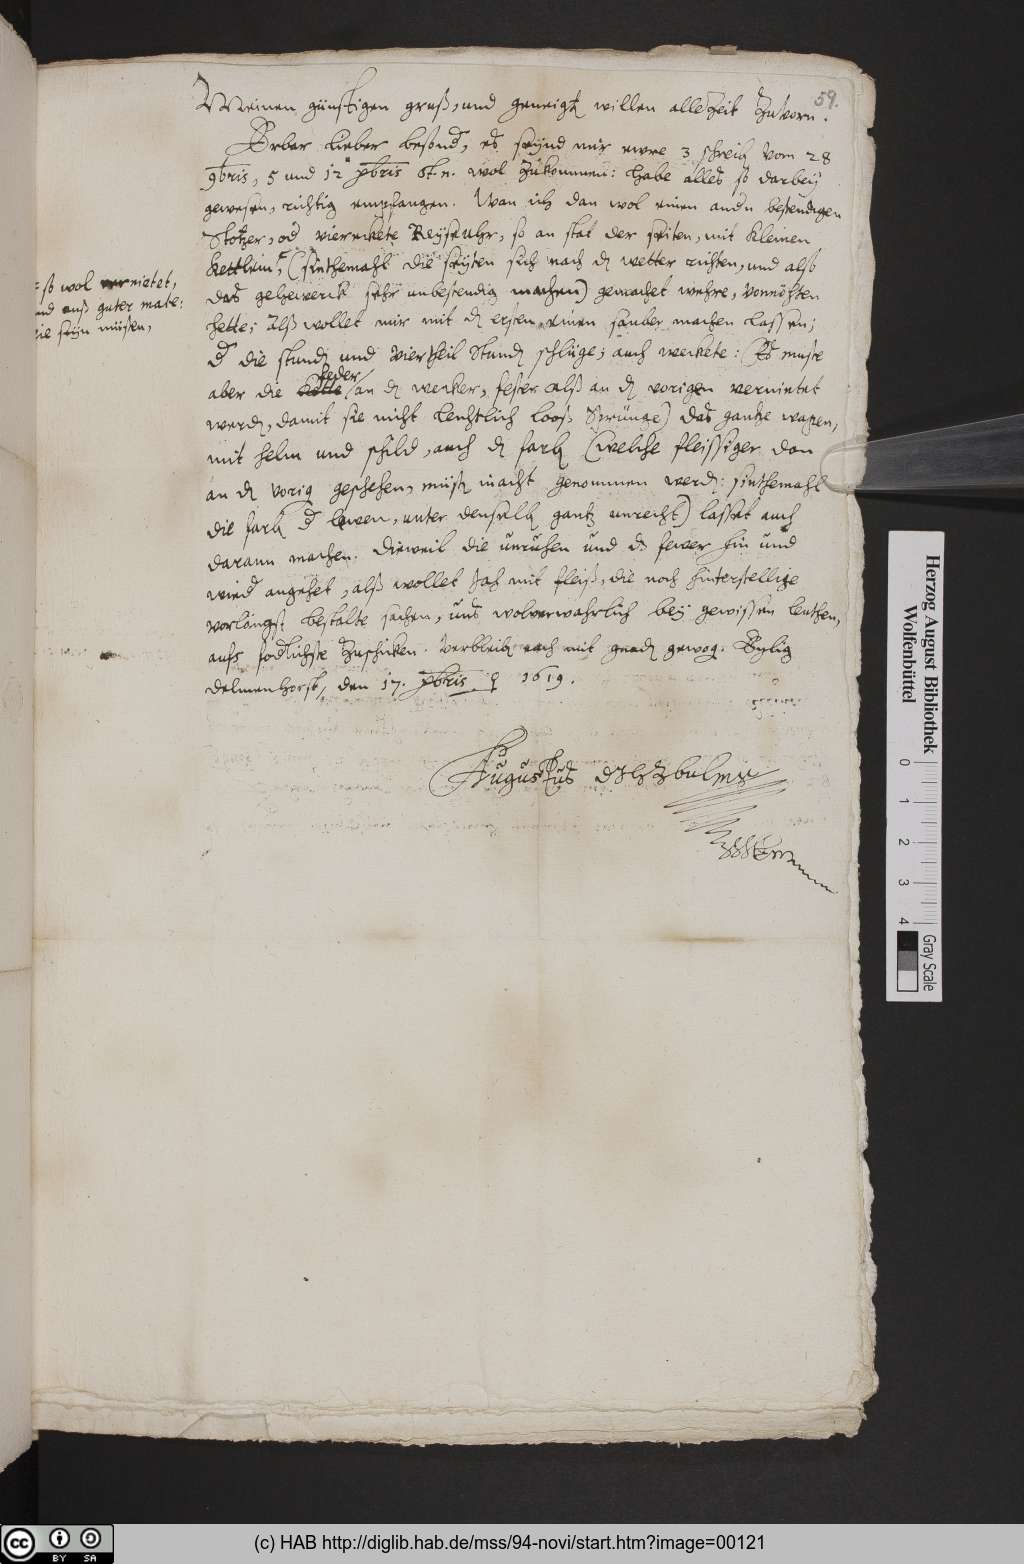 59.
Meinen günstigen gruß, und geneigt willen allezeit zuvorn.
Erber Lieber besond, es seynd mir ewre 3 schreib vom 28
9bris, 5 und 12 xbris St. n. wol zukommen: habe alles so darbey
gewesen, richtig empfangen. Wan ich dan wol einen andn bestendigen
Stotzer, od viereckete Reyseuhr, so an stat der seiten, mit kleinen
kettlein, (sinthemahl die seyten sich nach d wetter richten, und also
das gehewerck sehr unbestendig machen) gemachet wehre, vonnöthen
hette; Alß wollet mir mit d ersten einen sauber machen lassen;
d die stund und viertheil stund schlüge; auch weckete: (Es müste
feder
aber die kette an d wecker, fester alß an d vorigen vernietet
werd, damit sie nicht leichtlich looß sprünge) das gantze wapen,
mit helm und schild, auch d farb (welche fleissiger dan
an d vorig geschehen, müst in acht genommen werd: sinthemahl
die farb d lewen, unter denselb gantz unrecht) lasset auch
daran machen. Dieweil die unruhen und d fewer hin und
wied angehet, alß wollet Ich mit fleiß, die noch hinterstellige
vorlängst bestalte sachen, uns wolverwahrlich bey gewissen leuthen,
aufs fodlichste zuschicken. Verbleib euch mit gnad gewog. Eylig
Delmenhorst, den 17. xbris 1619.
Augustus
so wol vernietet,
und auß guter mate:
rie seyn müssen,
Herzog August Bibliothek
Wolfenbüttel
0 1 2 3 4
Gray Scale
cc BY SA
(c) HAB http://diglib.hab.de/mss/94-novi/start.htm?image=00121